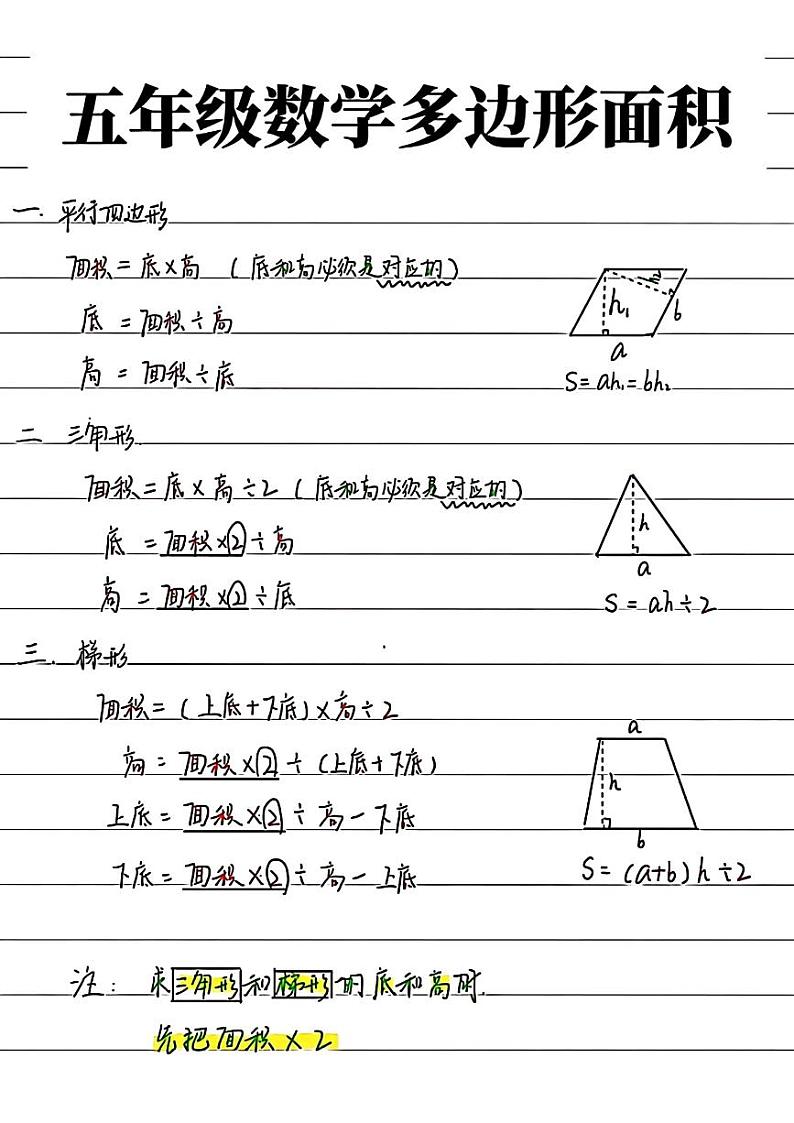 五年级数学多边形面积
一. 平行四边形
面积 = 底×高 (底和高必须是对应的)
底 = 面积÷高
高 = 面积÷底
h₁
h₂
b
a
S = ah₁ = bh₂
二 三角形.
面积 = 底×高÷2 (底和高必须是对应的)
底 = 面积×2÷高
高 = 面积×2÷底
h
a
S = ah÷2
三. 梯形
面积 = (上底+下底)×高÷2
高 = 面积×2÷(上底+下底)
上底 = 面积×2÷高-下底
下底 = 面积×2÷高-上底
a
h
b
S = (a+b)h÷2
注: 求三角形和梯形的底和高时.
先把面积×2